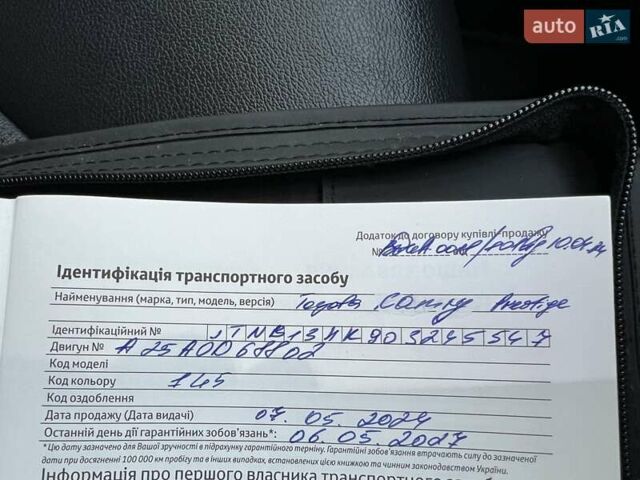 auto RIA.com
Додаток до договору купівлі-продажу
№ 10.04.24
Ідентифікація транспортного засобу
Найменування (марка, тип, модель, версія) Toyota Camry Prestige
Ідентифікаційний № JTNB13HK903245547
Двигун № A25A0068802
Код моделі
Код кольору 1L5
Код оздоблення
Дата продажу (Дата видачі) 07. 05. 2024
Останній день дії гарантійних зобов'язань*: 06. 05. 2027
*Цю дату зазначено для Вашої зручності в підрахунку гарантійного терміну. Гарантійні зобов'язання втрачають силу до зазначеної
дати при досягненні 100 000 км пробігу та в інших випадках, встановлених цією книжкою та чинним законодавством України.
Інформація про першого власника транспортного